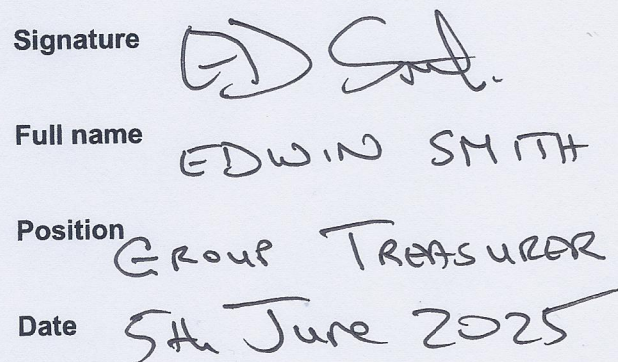 Signature ED Smith.
Full name EDWIN SMITH
Position GROUP TREASURER
Date 5th June 2025